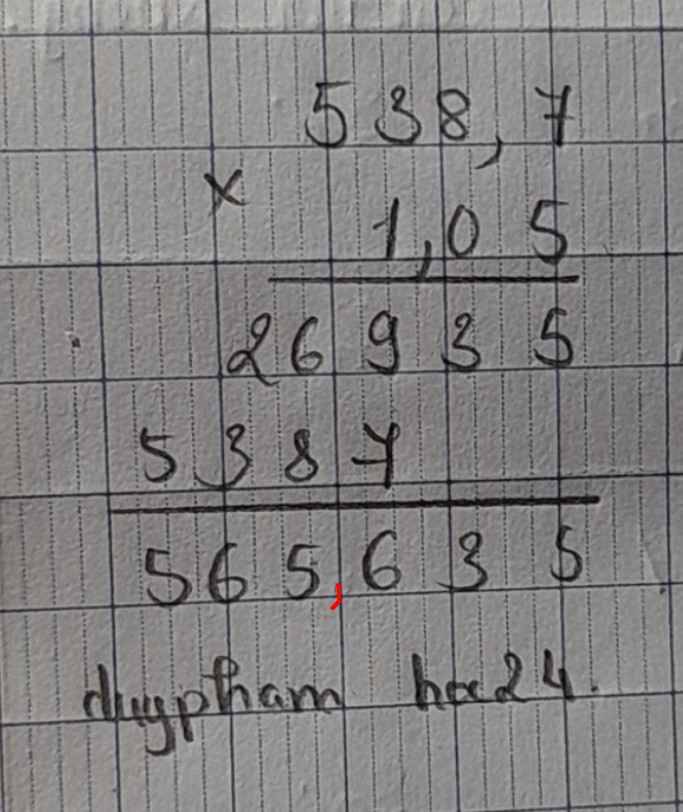 538,7
×
1,05
26935
5387
565,635
duypham hoc24.